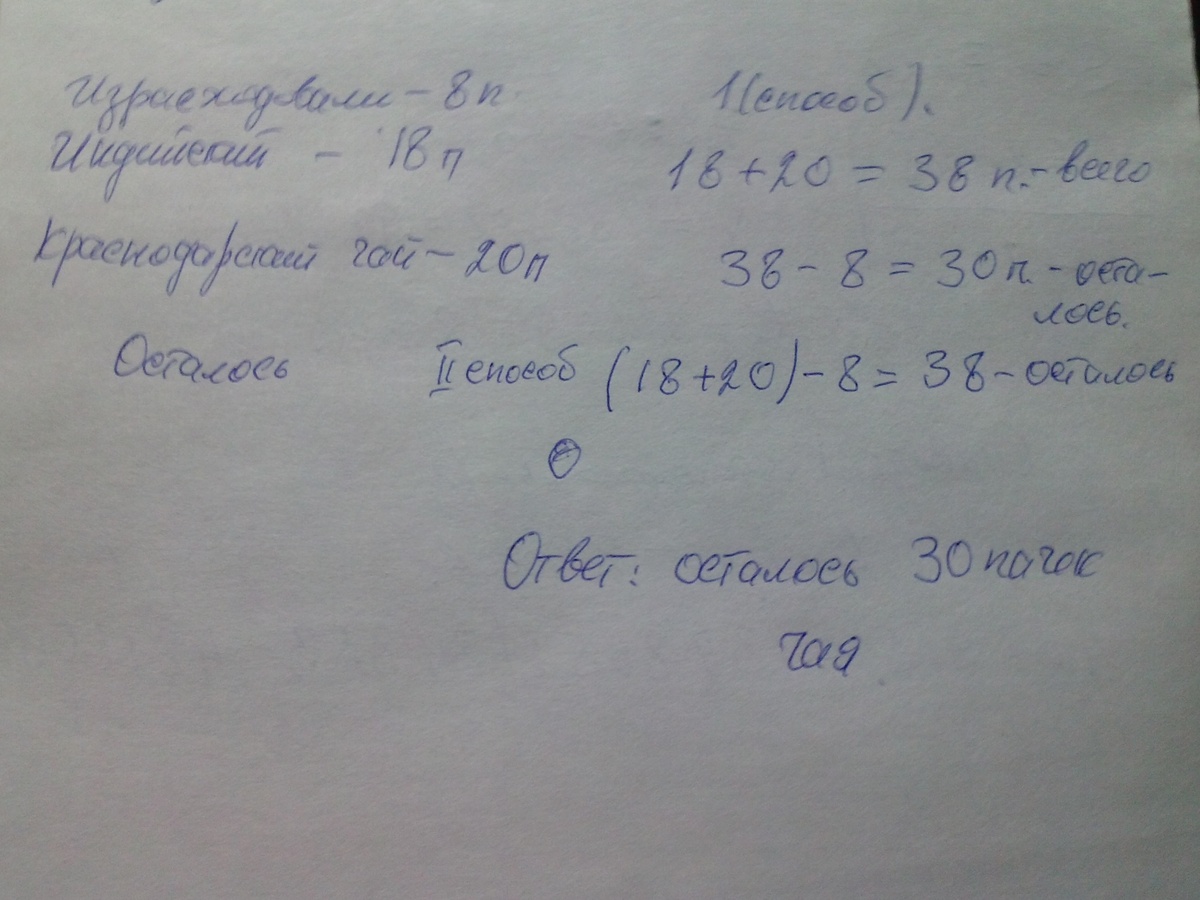 Израсходвали - 8 п.
1(способ).
Индийский - 18 п
18 + 20 = 38 п. - всего
Краснодарский чай - 20 п
38 - 8 = 30 п. - оста-
лось.
Осталось
II способ (18 + 20) - 8 = 38 - осталось
Ответ: осталось 30 пачек
чая